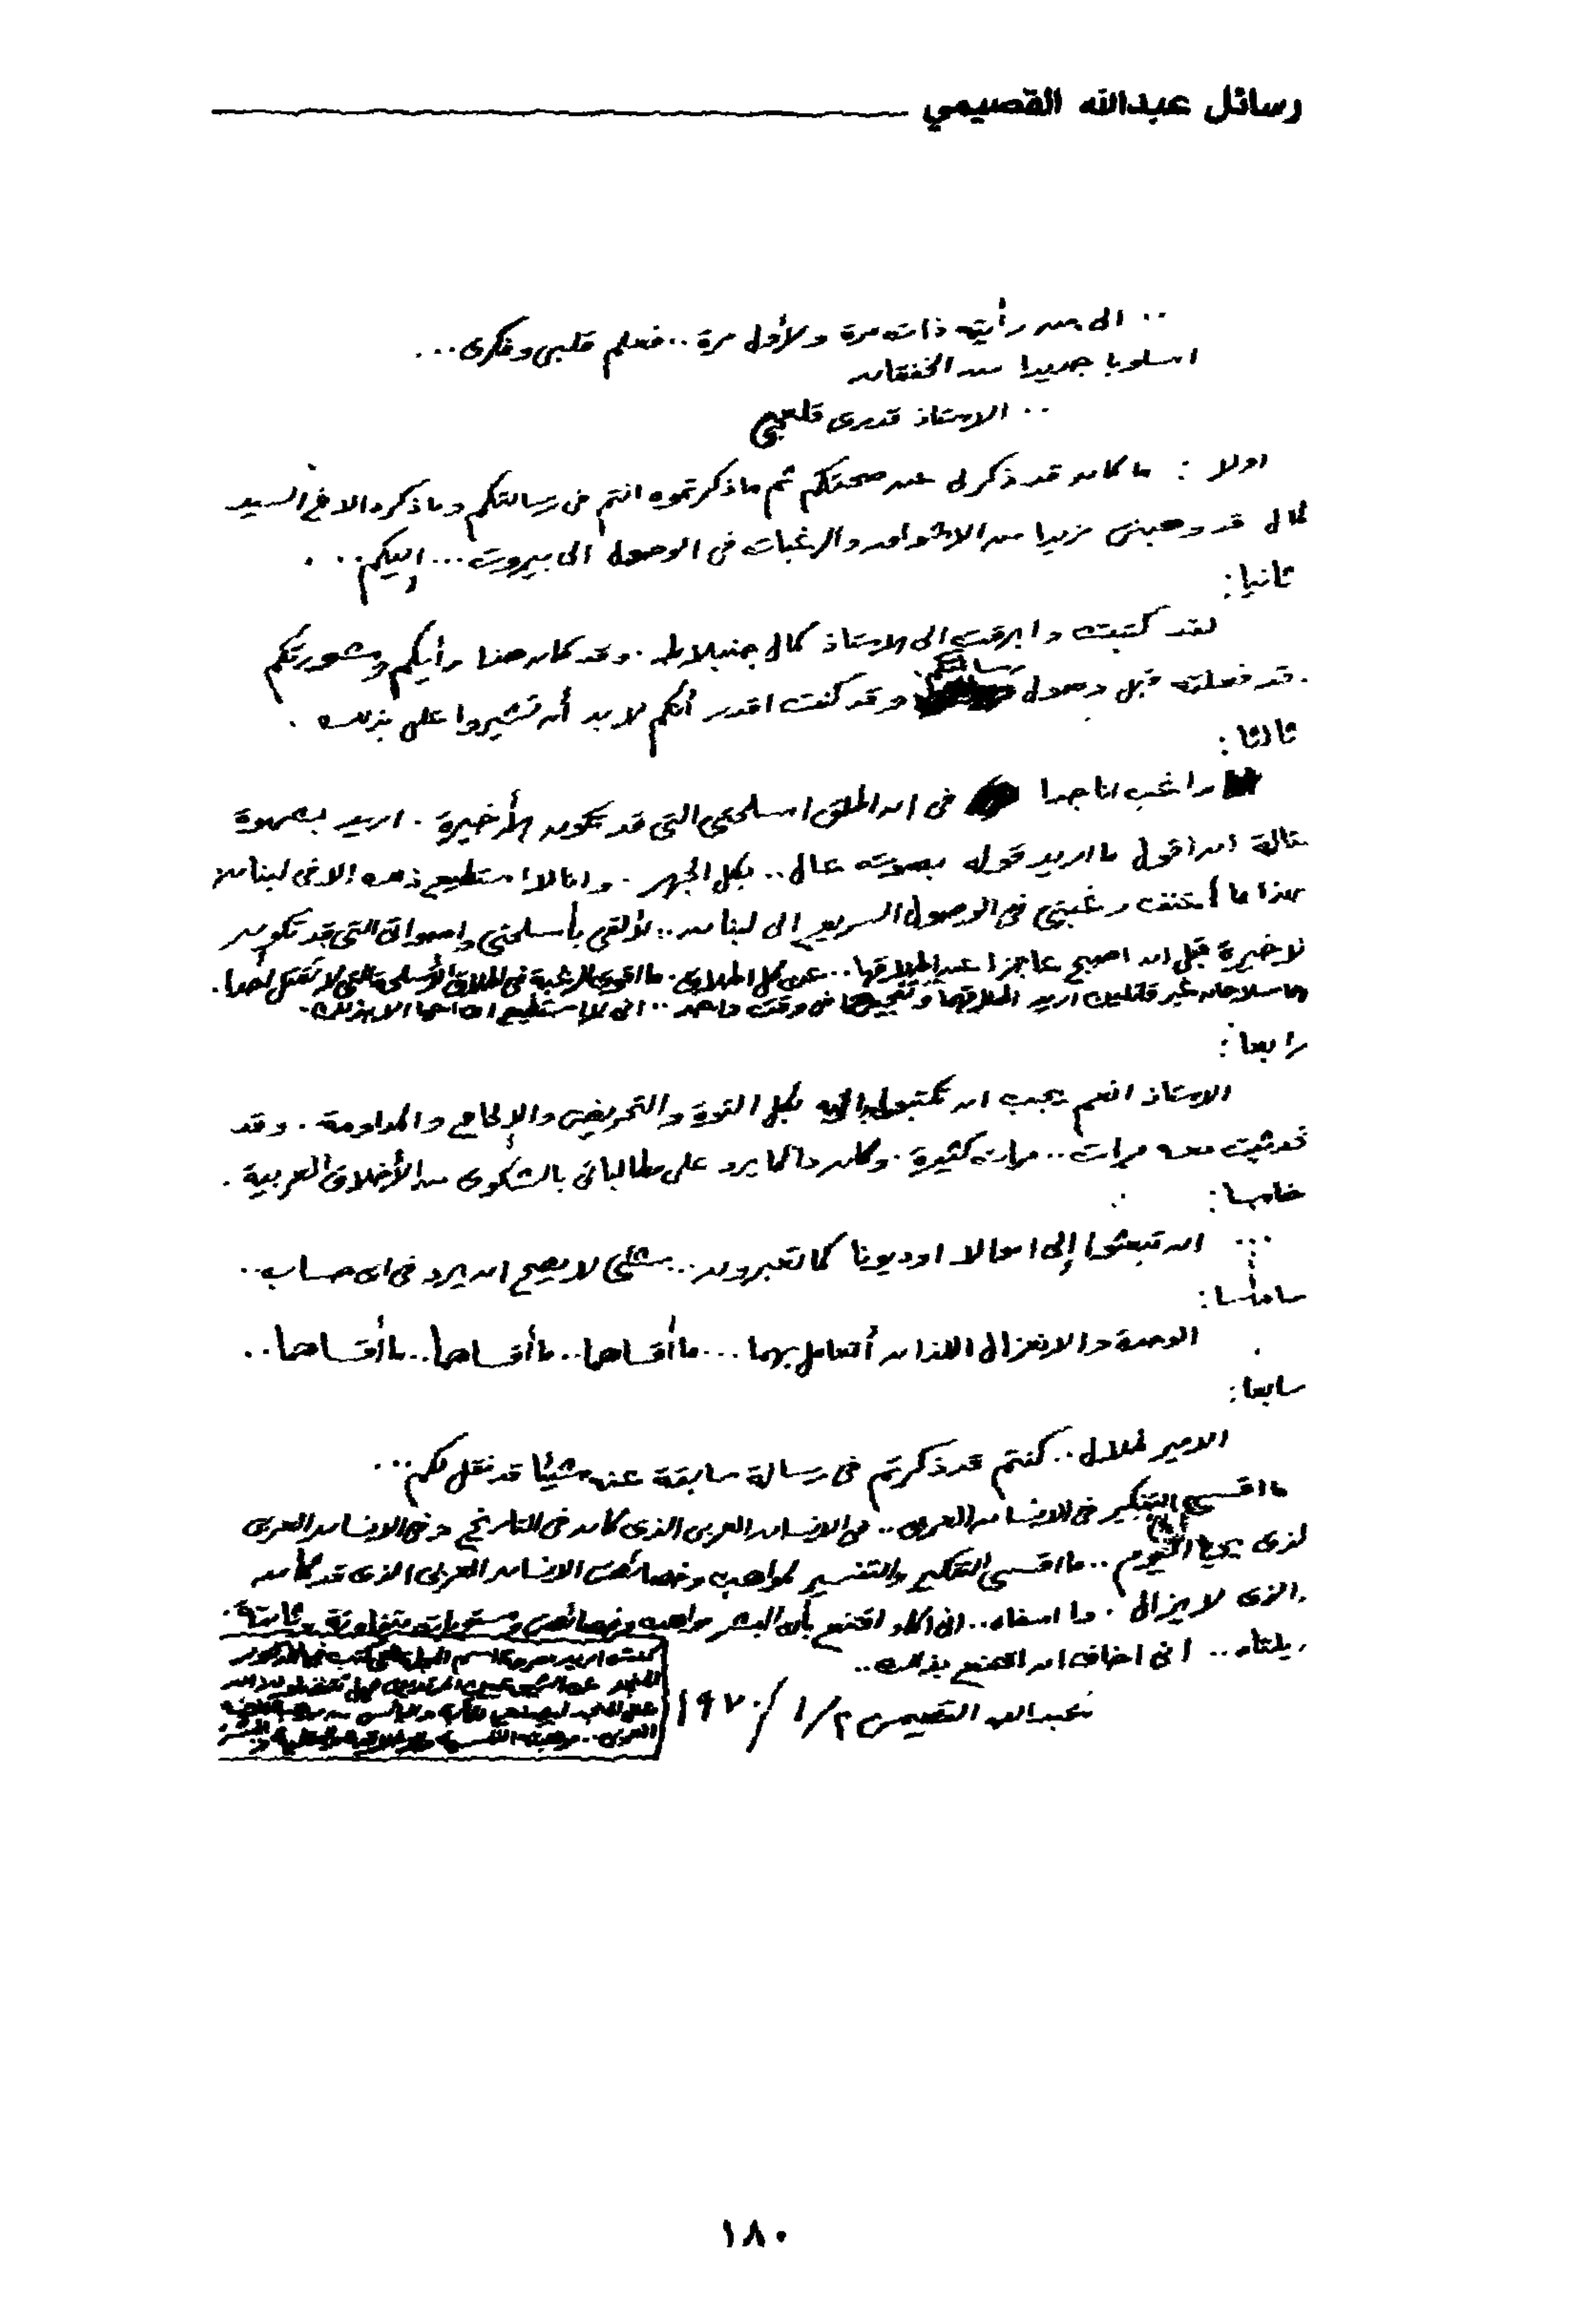 رسائل عبدالله القصيمي
.. الى من رأيته ذات مرة ولأول مرة .. فعلم قلبى وفكرى ...
اسلوبا جديدا من الخفقان
.. الاستاذ قدرى قلعجي
اولا : ما كان قد ذكر لى عن صحتكم ثم ماذكرتموه انتم فى رسالتكم وماذكره الاخ السيد
كمال قد وهبنى مزيدا من الاشواق والرغبات فى الوصول الى بيروت ... إليكم ...
ثانيا :
لقد كتبت وابرقت الى الاستاذ كمال جنبلاط . وقد كان هذا رأيكم ومشورتكم
. قد فعلته قبل وصول رسالتكم وقد كنت اقدر أنكم لا بد أن تشيروا على بذلك .
ثالثا :
راغب انا جدا فى ان اطلق اسلحتى التى قد تكون الأخيرة . اريد بصهوة
ان اقول ما اريد قوله بصوت عال .. بكل الجهر . وانا لا استطيع ذلك الا فى لبنان
هذا ما رغبتى فى الوصول السريع الى لبنان .. لألقى بأسلحتى واصواتى التى قد تكون
لاخيرة قبل ان اصبح عاجزا عن اطلاقها .. عن كل اطلاق . ما اقوى الرغبة فى اطلاق الأسلحة التى لا تقتل أحدا .
سلاحان غير قاتلين اريد اطلاقهما فى وقت واحد .. انى لا استطيع ان احيا الا بذلك .
رابعا :
الاستاذ انعم يجب ان تكتبوا إليه بكل القوة والتحريض والإلحاح والمداومة . وقد
تحدثت معه مرات .. مرات كثيرة . وكان دائما يرد على مطالباتى بالشكوى من الأخلاق العربية .
خامسا :
... ان تبعثوا إلى اموالا او ديونا كما تعبرون .. شئ لا يصح ان يرد فى اى حساب ..
سادسا :
الوحدة والانعزال اللذان أتعامل بهما ... ما أقساهما .. ما أقساهما .. ما أقساهما ..
سابعا :
الامير طلال .. كنتم قد ذكرتم فى رسالة سابقة عنه شيئا قد نقل لكم ...
ما اقسى التفكير فى الانسان العربى .. فى الانسان العربى الذى كان فى التاريخ وفى الانسان العربى
لذى يحيا اليوم .. ما اقسى التفكير والتفسير لمواهب وخصائص الانسان العربى الذى قد كان
والذى لا يزال . وا اسفاه .. انى اكاد اقتنع بأن البشر مواهب وخصائص ومستويات متفاوتة ثابتة .
ويلتاه .. انى اخاف ان اقتنع بذلك ..
عبدالله القصيمى ٢/١/١٩٧٠
١٨٠